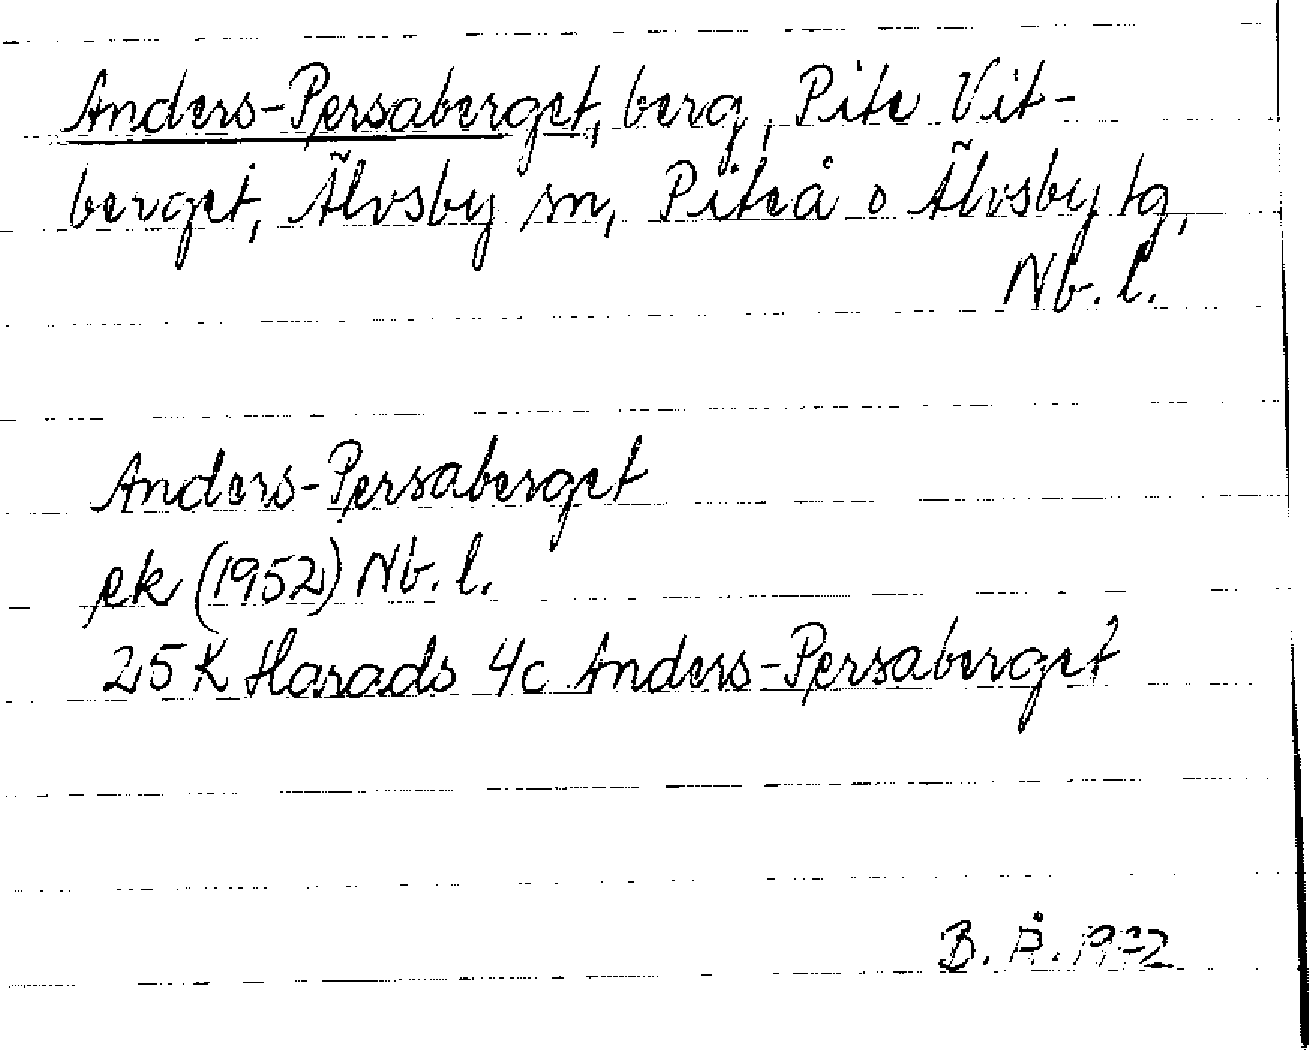 Anders-Persaberget, berg, Pite Vit-
berget, Älvsby sn, Piteå o Älvsby tg,
Nb. l.
Anders-Persaberget
ek (1952) Nb. l.
25 K Harads 4c Anders-Persaberget
B. Å. 1972